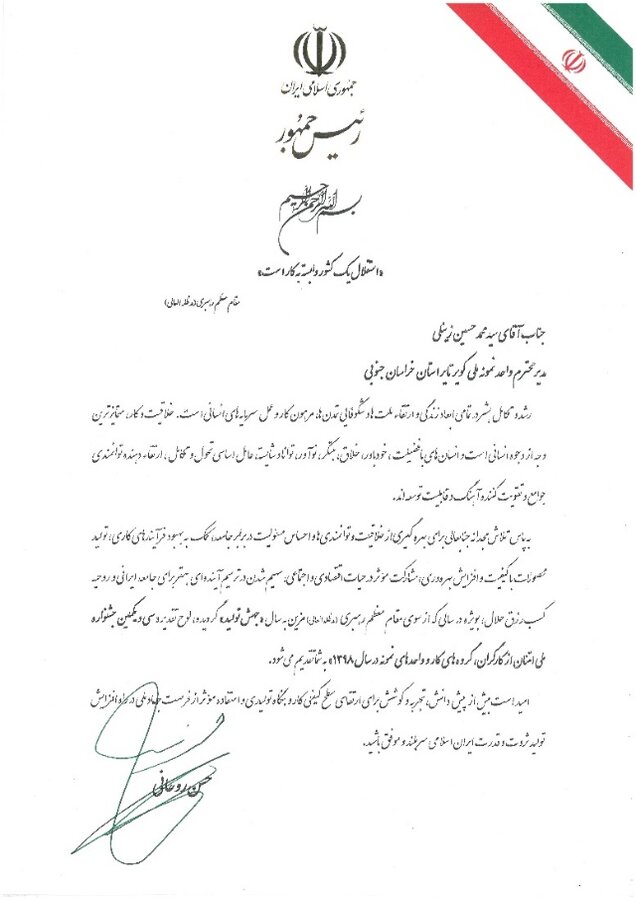 جمهوری اسلامی ایران
رئیس جمهور
بسم الله الرحمن الرحیم
«استقلال یک کشور وابسته به کار است»
مقام معظم رهبری (مدظله العالی)
جناب آقای سید محمد حسین زینلی
مدیر محترم واحد نمونه ملی کویر تایر استان خراسان جنوبی
رشد و تکامل بشر در تمامی ابعاد زندگی و ارتقاء ملت‌ها و شکوفایی تمدن‌ها، مرهون کار و عمل سرمایه‌های انسانی است. خلاقیت و کار، متمایزترین
وجه از وجوه انسانی است و انسان‌های بافضیلت، خودباور، خلاق، مبتکر، نوآور، توانا و شایسته، عامل اساسی تحول و تکامل، ارتقاء دهنده توانمندی
جوامع و تقویت کننده آهنگ و قابلیت توسعه‌اند.
به پاس تلاش مجدانه جنابعالی برای بهره‌گیری از خلاقیت و توانمندی‌ها و احساس مسئولیت در برابر جامعه، کمک به بهبود فرآیندهای کاری، تولید
محصولات با کیفیت و افزایش بهره‌وری، مشارکت مؤثر در حیات اقتصادی و اجتماعی، سهیم شدن در ترسیم آینده‌ای بهتر برای جامعه ایرانی و روحیه
کسب رزق حلال؛ بویژه در سالی که از سوی مقام معظم رهبری (مدظله العالی) مزین به سال «جهش تولید» گردیده، لوح تقدیر و سی و یکمین جشنواره
ملی امتنان از کارگران، گروه‌های کار و واحدهای نمونه در سال ۱۳۹۸» به شما تقدیم می‌شود.
امید است بیش از پیش دانش، تجربه و کوشش برای ارتقای سطح کیفی کار و بنگاه تولیدی و استفاده مؤثر از فرصت جهاد ملی در راه افزایش
تولید ثروت و قدرت ایران اسلامی سربلند و موفق باشید.
حسن روحانی